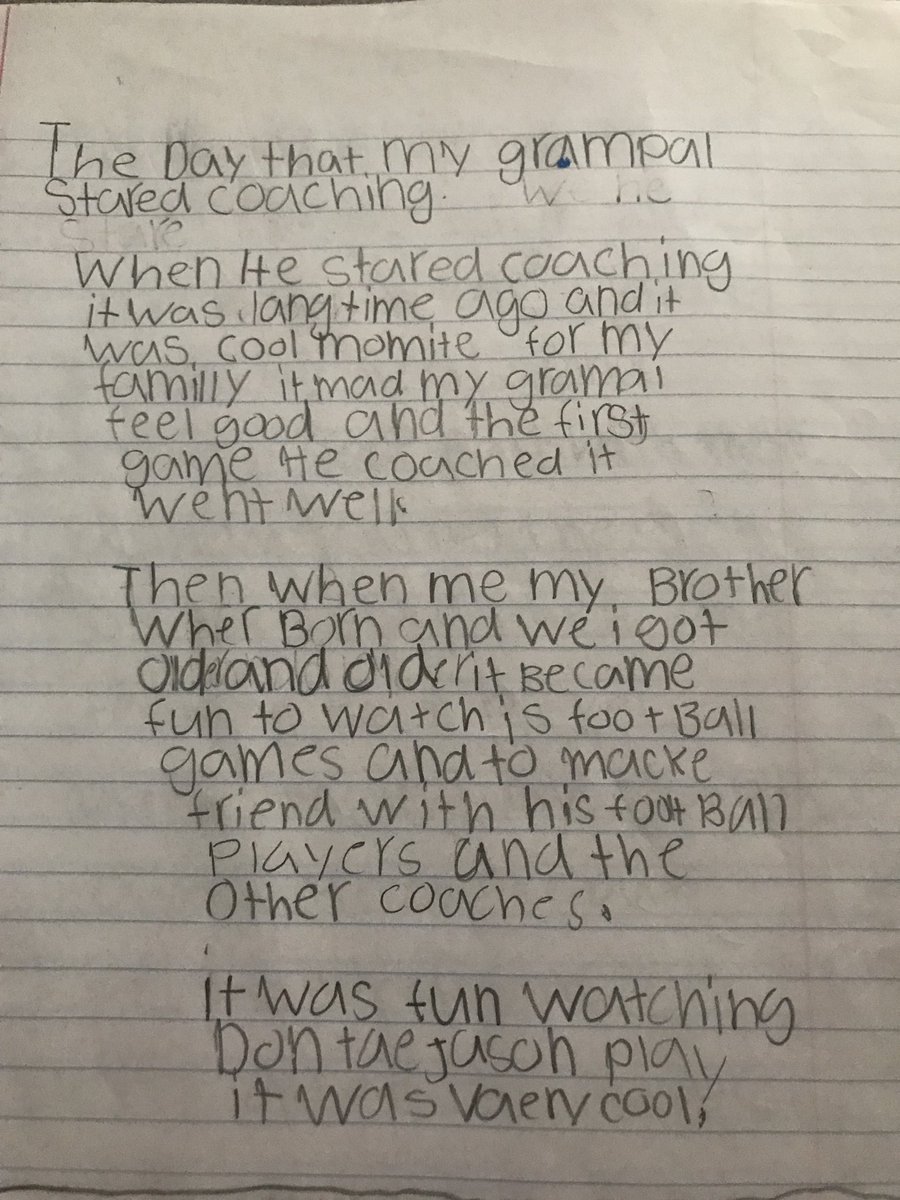 The Day that my grampal
Stared coaching. We he
Stare
When He stared coaching
it was lang time ago and it
was cool momite for my
familly it mad my gramal
feel good and the first
game He coached it
went well.
Then when me my Brother
wher Born and we i got
older and older it Became
fun to watch is foot Ball
games and to macke
friend with his foot Ball
Players and the
Other coaches.
it was fun watching
Dontae jason play
it was vaery cool,